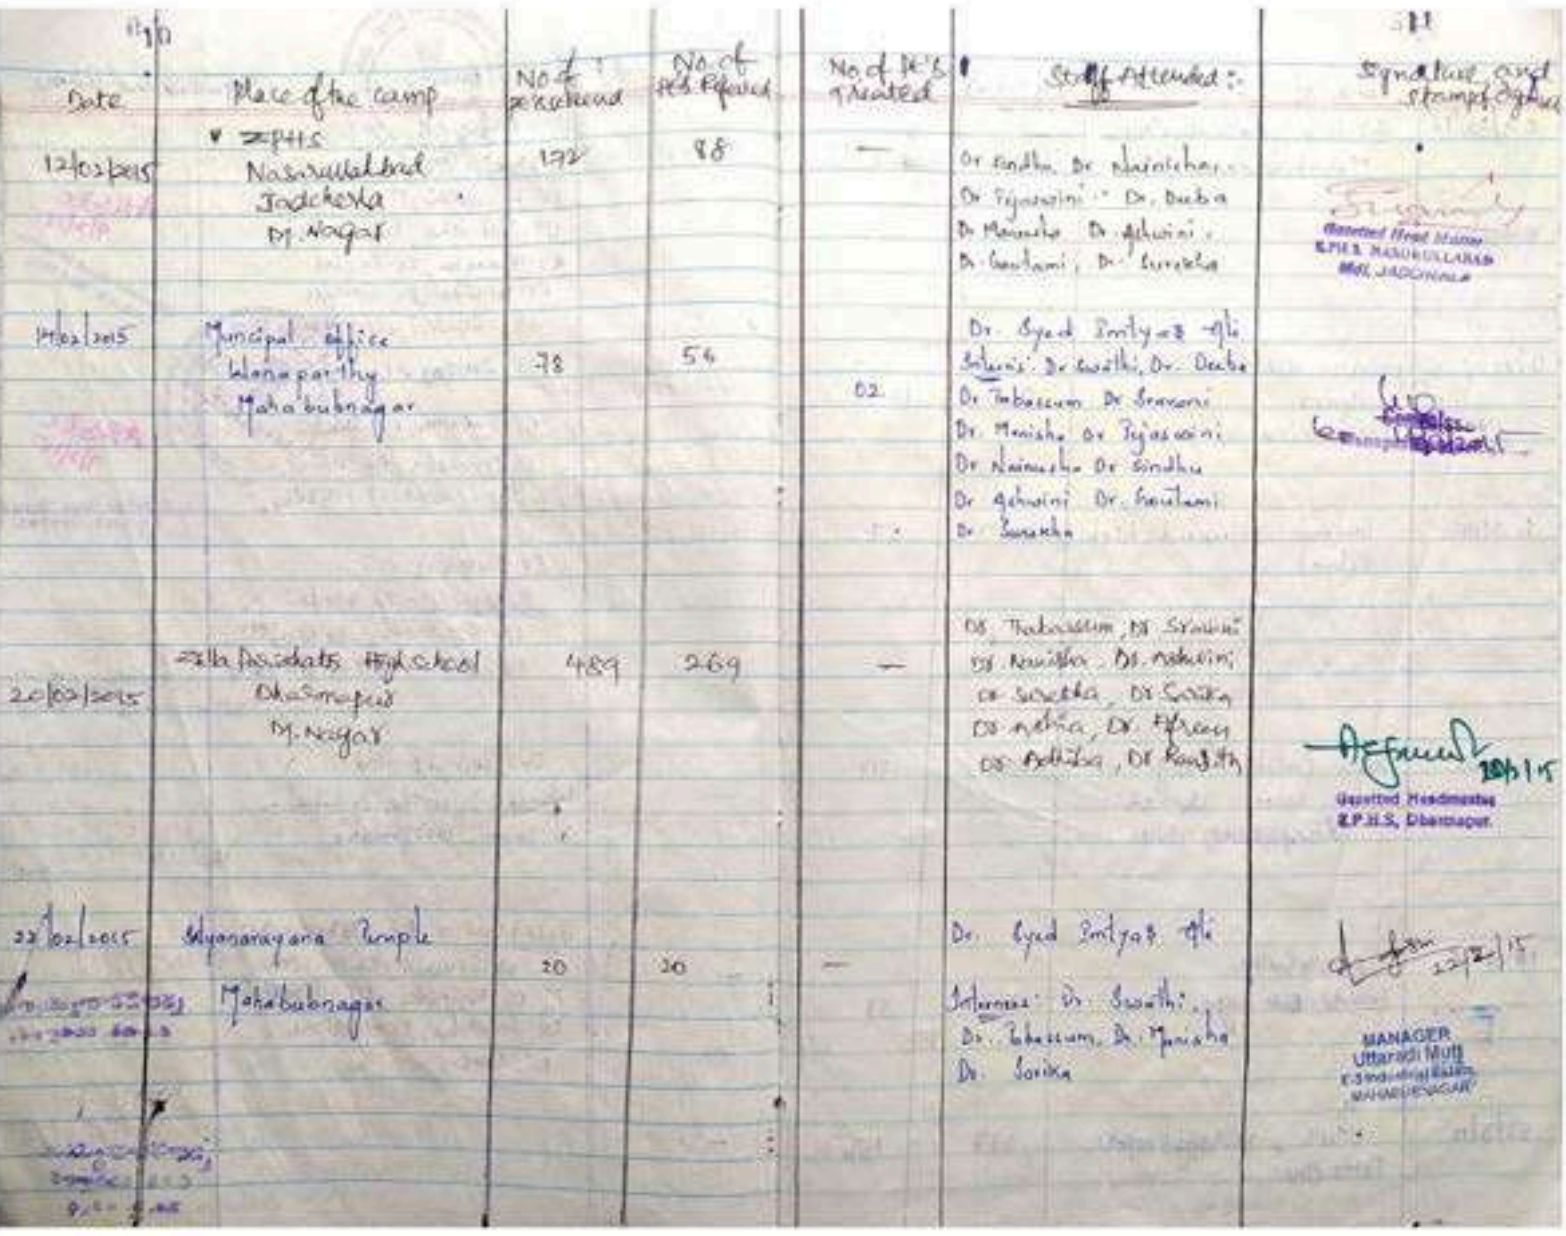 Date
Place of the camp
No. of
No. of
Pts Refered
No. of Pt's
Treated
Staff Attended :-
Signature and
12/02/2015
ZPHS
Nasarullabad
Jadcherla
M. Nagar
172
88
—
Dr Sindhu, Dr
Dr Tejaswini Dr. Deeba
Dr Manisha Dr. Ashwini
Dr Goutami, Dr. Surekha
Gazetted Head Master
14/02/2015
Muncipal office
Wanaparthy
Mahabubnagar
78
02
Dr. Syed Imtyaz Ali
Interns: Dr Swathi, Dr. Deeba
Dr Tabassum Dr Sravani
Dr. Manisha Dr Tejaswini
Dr Sindhu
Dr Ashwini Dr. Goutami
Dr. Surekha
20/02/2015
Zilla High School
Dharmapur
M. Nagar
489
269
—
Dr. Thabassum, Dr Sravani
Dr. Manisha, Dr. Ashwini
Dr Surekha, Dr Sarika
Dr, Dr. Afreen
Dr Adhiba, Dr Ranjith
Gazetted Headmaster
Z.P.H.S, Dharmapur.
22/02/2015
Temple
Mahabubnagar
20
20
—
Dr. Syed Imtyaz Ali
Internees: Dr. Swathi,
Dr. Tabassum, Dr. Manisha
Dr. Sarika
22/2/15
MANAGER
Uttaradi Mutt
MAHABUBNAGAR